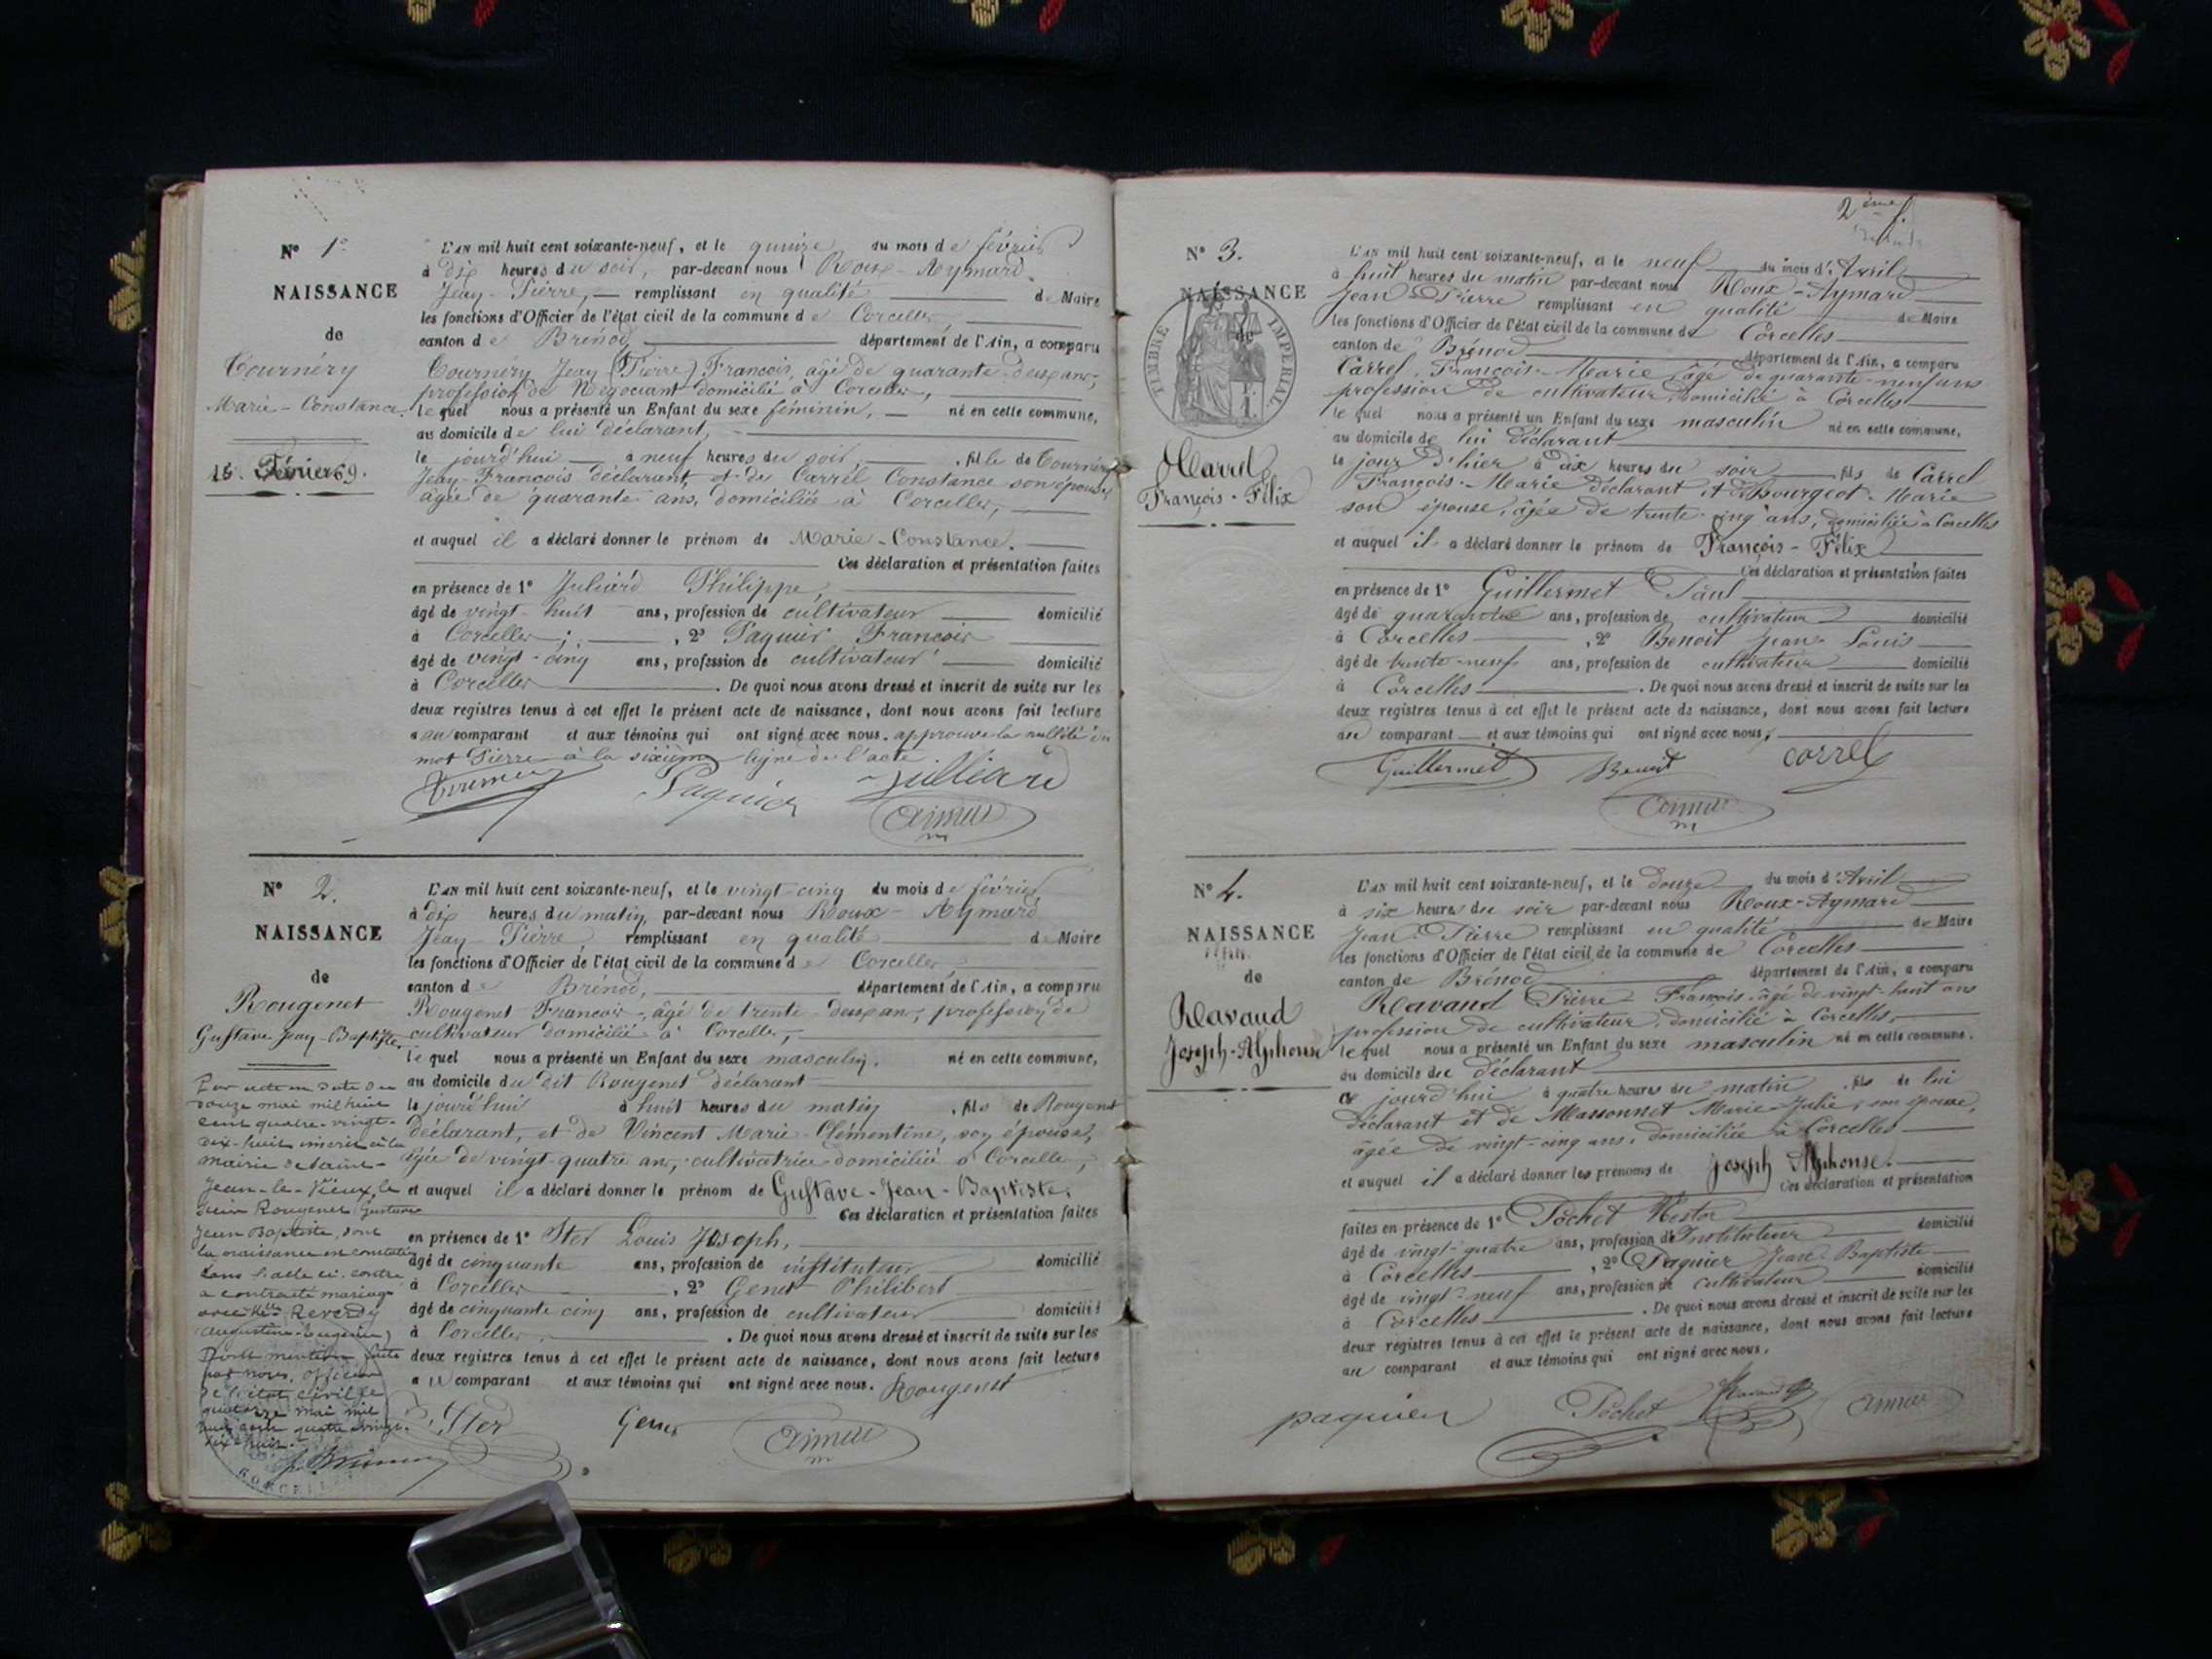 N° 1°
NAISSANCE
de
Tournéry
Marie-Constance.
15. Février 69.
L'AN mil huit cent soixante-neuf, et le quinze du mois de février
à dix heures du soir, par-devant nous Roux-Aymard
Jean-Pierre, remplissant en qualité de Maire
les fonctions d'Officier de l'état civil de la commune de Corcelles,
canton de Brénod, département de l'Ain, a comparu
Tournéry Jean (Pierre) François, âgé de quarante-deux ans,
profession de Négociant domicilié à Corcelles,
lequel nous a présenté un Enfant du sexe féminin, né en cette commune,
au domicile de lui déclarant,
le jourd'hui à neuf heures du soir, fille de Tournéry
Jean-François déclarant, et de Carrel Constance son épouse,
âgée de quarante ans, domiciliée à Corcelles,
et auquel il a déclaré donner le prénom de Marie-Constance.
Ces déclaration et présentation faites
en présence de 1° Juliard Philippe,
âgé de vingt-huit ans, profession de cultivateur domicilié
à Corcelles; , 2° Paquier François
âgé de vingt-cinq ans, profession de cultivateur domicilié
à Corcelles . De quoi nous avons dressé et inscrit de suite sur les
deux registres tenus à cet effet le présent acte de naissance, dont nous avons fait lecture
au comparant et aux témoins qui ont signé avec nous. approuvé la nullité du
mot Pierre à la sixième ligne de l'acte
Paquier Julliard
N° 2.
NAISSANCE
de
Rougenet
Gustave-Jean-Baptiste
Par acte en date du
douze mai mil huit
cent quatre-vingt-
dix-huit inscrit à la
mairie de Saint-
Jean-le-Vieux, le
sieur Rougenet Gustave
Jean Baptiste, dont
la naissance est constatée
dans l'acte ci-contre
a contracté mariage
avec Mlle Reverdy
(Augustine-Eugénie)
Dont mention faite
par nous, officier
de l'état civil le
quatorze mai mil
huit cent quatre vingt-
dix huit.
L'AN mil huit cent soixante-neuf, et le vingt-cinq du mois de février
à dix heures du matin, par-devant nous Roux-Aymard
Jean-Pierre, remplissant en qualité de Maire
les fonctions d'Officier de l'état civil de la commune de Corcelles
canton de Brénod, département de l'Ain, a comparu
Rougenet François, âgé de trente-deux ans, profession de
cultivateur domicilié à Corcelles,
lequel nous a présenté un Enfant du sexe masculin, né en cette commune,
au domicile du dit Rougenet déclarant
le jourd'hui à huit heures du matin, fils de Rougenet
déclarant, et de Vincent Marie-Clémentine, son épouse,
âgée de vingt-quatre ans, cultivatrice domiciliée à Corcelles,
et auquel il a déclaré donner le prénom de Gustave-Jean-Baptiste,
Ces déclaration et présentation faites
en présence de 1° Ster Louis Joseph,
âgé de cinquante ans, profession de instituteur domicilié
à Corcelles , 2° Genet Philibert
âgé de cinquante cinq ans, profession de cultivateur domicilié
à Corcelles, . De quoi nous avons dressé et inscrit de suite sur les
deux registres tenus à cet effet le présent acte de naissance, dont nous avons fait lecture
au comparant et aux témoins qui ont signé avec nous. Rougenet
Ster Genet
2ème f.
N° 3.
NAISSANCE
de
TIMBRE IMPERIAL
Carrel
François-Félix
L'AN mil huit cent soixante-neuf, et le neuf du mois d'Avril
à huit heures du matin par-devant nous Roux-Aymard
Jean-Pierre remplissant en qualité de Maire
les fonctions d'Officier de l'état civil de la commune de Corcelles
canton de Brénod département de l'Ain, a comparu
Carrel, François-Marie âgé de quarante-neuf ans
profession de cultivateur domicilié à Corcelles
lequel nous a présenté un Enfant du sexe masculin né en cette commune,
au domicile de lui déclarant
le jour d'hier à dix heures du soir fils de Carrel
François-Marie déclarant et de Bourgeot-Marie
son épouse, âgée de trente-cinq ans, domiciliée à Corcelles
et auquel il a déclaré donner le prénom de François-Félix
Ces déclaration et présentation faites
en présence de 1° Guillermet Paul
âgé de quarante ans, profession de cultivateur domicilié
à Corcelles , 2° Benoit Jean-Louis
âgé de trente-neuf ans, profession de cultivateur domicilié
à Corcelles . De quoi nous avons dressé et inscrit de suite sur les
deux registres tenus à cet effet le présent acte de naissance, dont nous avons fait lecture
au comparant et aux témoins qui ont signé avec nous,
Guillermet Benoit carrel
N° 4.
NAISSANCE
de
Ravaud
Joseph-Alphonse
L'AN mil huit cent soixante-neuf, et le douze du mois d'Avril
à six heures du soir par-devant nous Roux-Aymard
Jean-Pierre remplissant en qualité de Maire
les fonctions d'Officier de l'état civil de la commune de Corcelles
canton de Brénod département de l'Ain, a comparu
Ravaud Pierre François, âgé de vingt-huit ans
profession de cultivateur, domicilié à Corcelles,
lequel nous a présenté un Enfant du sexe masculin né en cette commune.
au domicile du déclarant
ce jourd'hui à quatre heures du matin, fils de lui
déclarant et de Massonnet Marie-Julie, son épouse,
âgée de vingt-cinq ans, domiciliée à Corcelles
et auquel il a déclaré donner les prénoms de Joseph Alphonse.
Ces déclaration et présentation
faites en présence de 1° Pochet Nestor
âgé de vingt-quatre ans, profession d'Instituteur domicilié
à Corcelles , 2° Paquier Jean-Baptiste
âgé de vingt-neuf ans, profession de cultivateur domicilié
à Corcelles . De quoi nous avons dressé et inscrit de suite sur les
deux registres tenus à cet effet le présent acte de naissance, dont nous avons fait lecture
au comparant et aux témoins qui ont signé avec nous.
paquier Pochet Ravaud